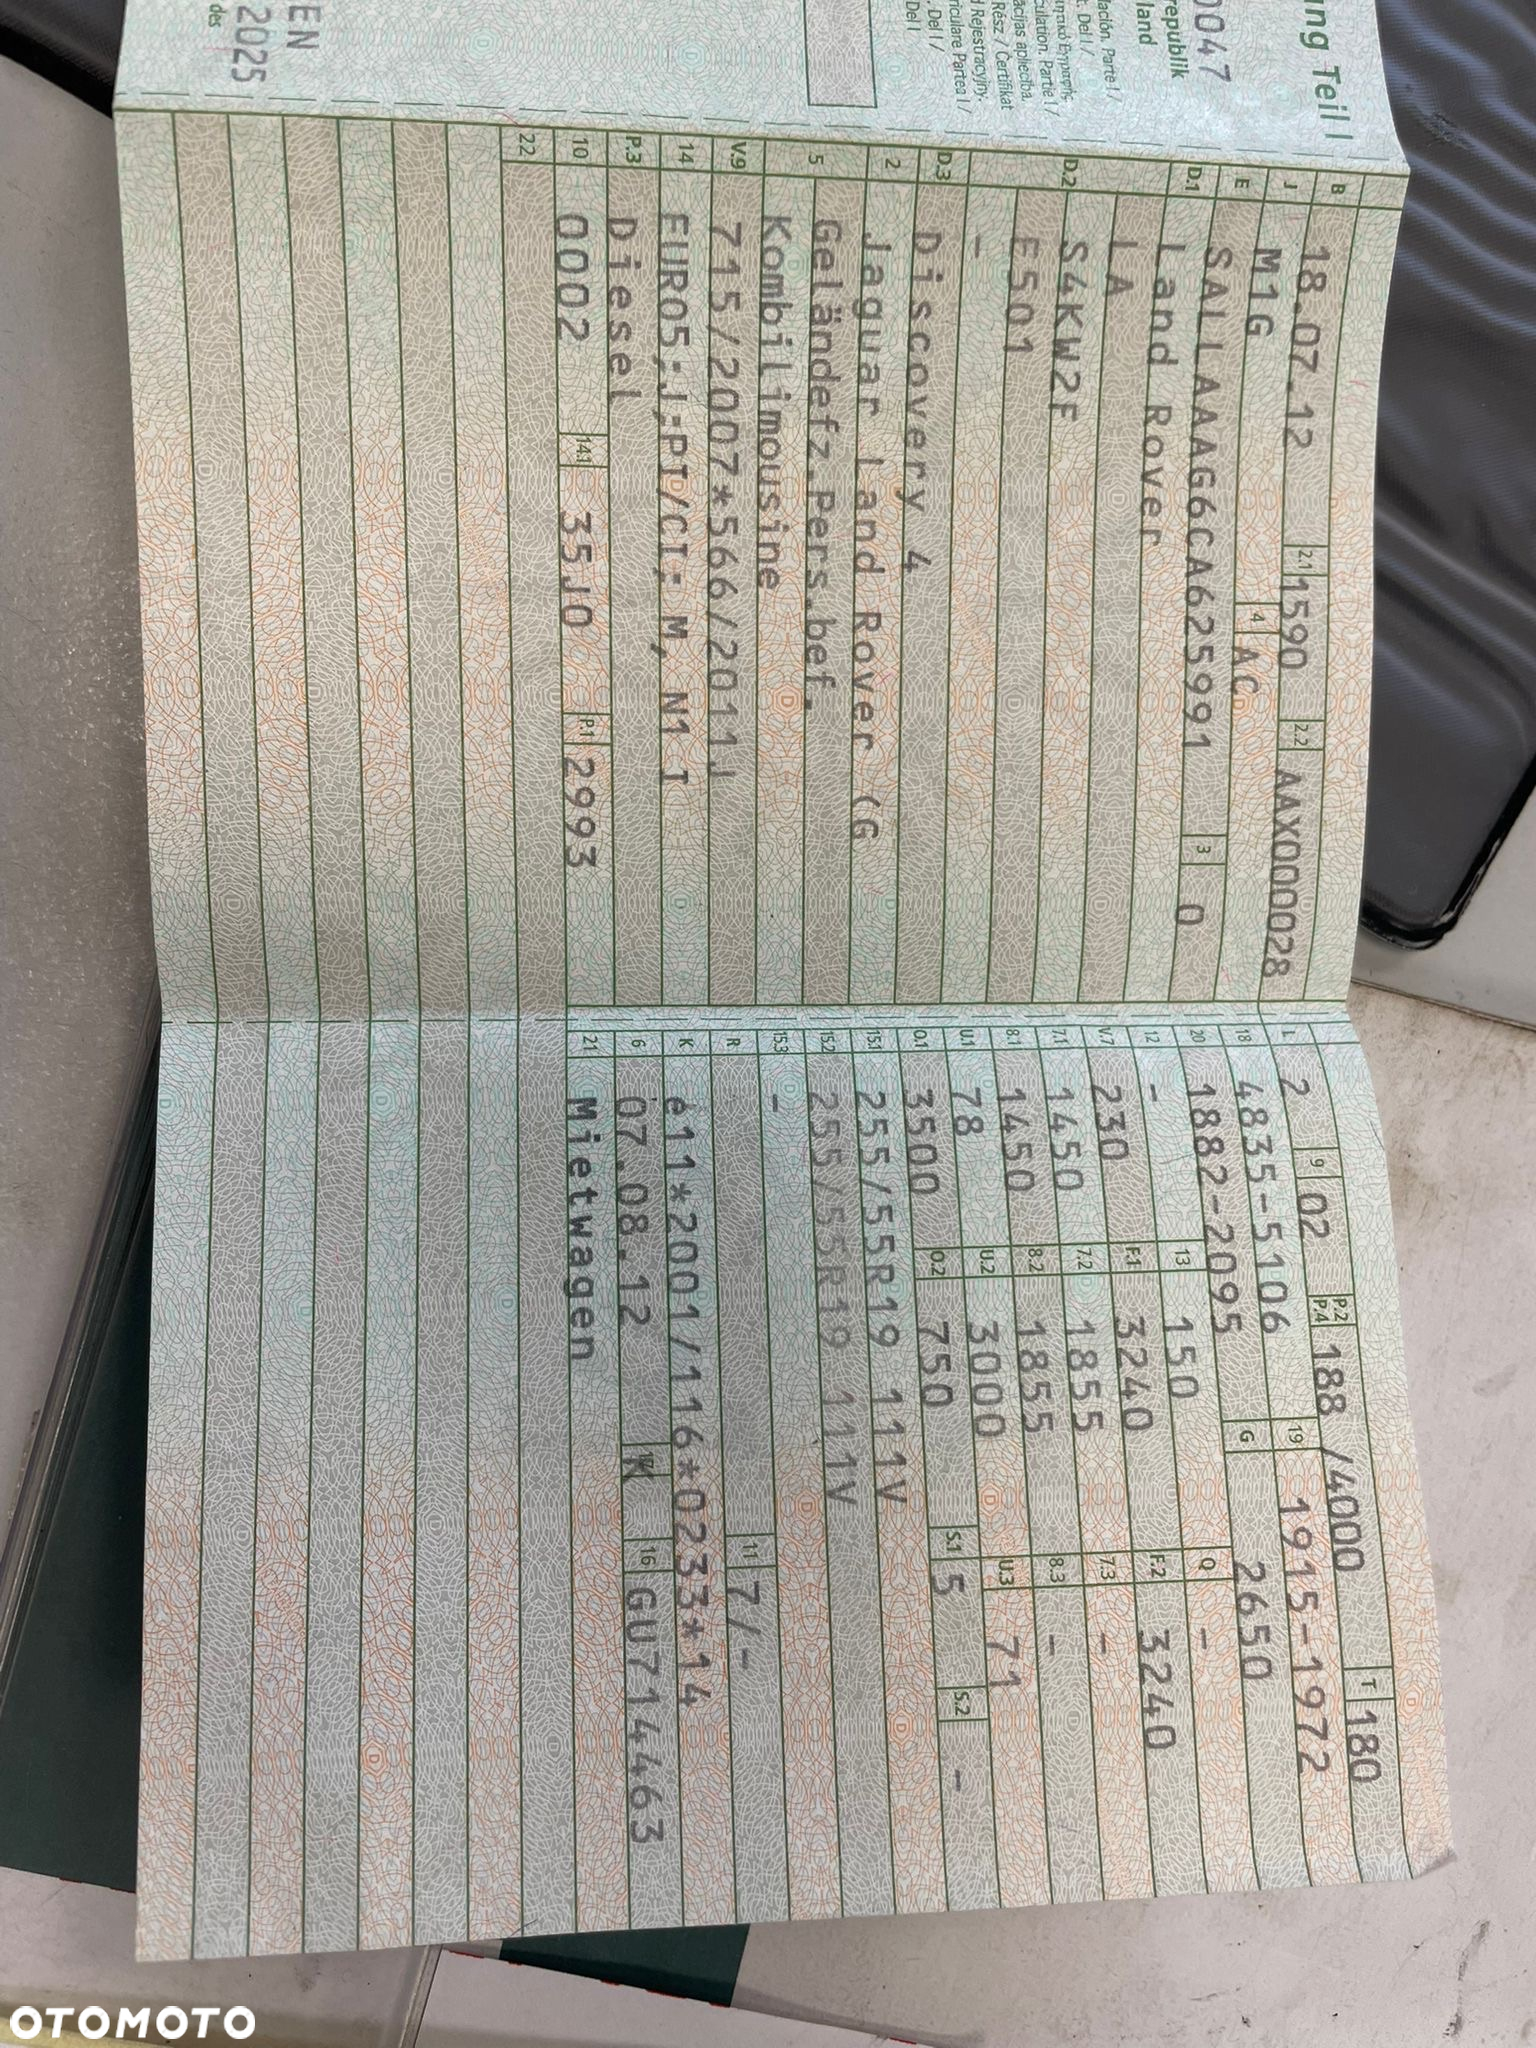 ung Teil I
0047
republik
land
lación. Parte I /
t. Del I /
culation. Partie I /
acijas apliecība.
Rész / Ċertifikat
d Rejestracyjny.
. Del I /
riculare Partea I /
Del I
EN
2025
des
B 18.07.12 2.1 1590 2.2 AAX000028
J M1G 4 AC
E SALLAAAG6CA625991 3 0
D.1 Land Rover
LA
D.2 S4KW2F
E501
-
D.3 Discovery 4
2 Jaguar Land Rover (G
5 Geländefz.Pers.bef.
Kombilimousine
V.9 715/2007*566/2011J
14 EURO5;J;PI/CI; M, N1 I
P.3 Diesel
10 0002 14.1 35J0 P.1 2993
22
L 2 9 02 P.2 P.4 188 /4000 T 180
18 4835-5106 19 1915-1972
20 1882-2095 G 2650
12 - 13 150 Q -
V.7 230 F.1 3240 F.2 3240
7.1 1450 7.2 1855 7.3 -
8.1 1450 8.2 1855 8.3 -
U.1 78 U.2 3000 U.3 71
O.1 3500 O.2 750 S.1 5 S.2 -
15.1 255/55R19 111V
15.2 255/55R19 111V
15.3 -
R 11 7/-
K e11*2001/116*0233*14
6 07.08.12 K 16 GU714463
21 Mietwagen
OTOMOTO